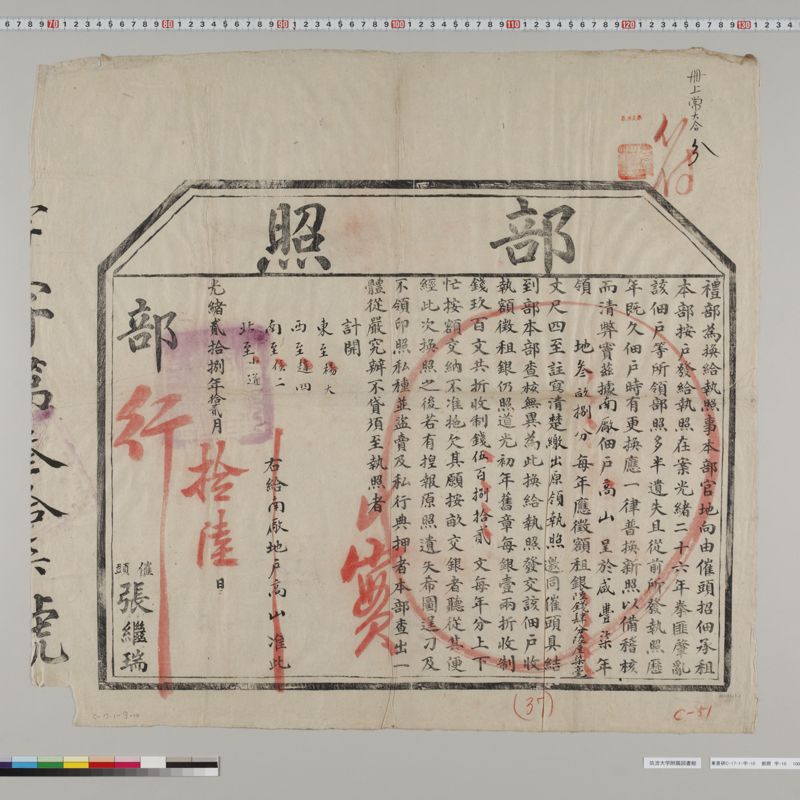 冊上常大合
分
符
部照
禮部為換給執照事本部官地向由催頭招佃承租
本部按戶發給執照在案光緒二十六年拳匪肇亂
該佃戶等所領部照多半遺失且從前所發執照歷
年既久佃戶時有更換應一律普換新照以備稽核
而清弊竇茲據南廠佃戶高山呈於咸豐柒年
領 地叁畝捌分每年應徵額租銀陸錢肆分陸厘柒毫
丈尺四至註寫清楚繳出原領執照邀同催頭具結
到部本部查核無異為此換給執照發交該佃戶收
執額徵租銀仍照道光初年舊章每銀壹兩折收制
錢玖百文共折收制錢伍百捌拾貳 文每年分上下
忙按額交納不准拖欠其願按畝交銀者聽從其便
經此次換照之後若有捏報原照遺失希圖逞刁及
不領印照私種並盜賣及私行典押者本部查出一
體從嚴究辦不貸須至執照者
計開
東至楊大
西至 四
南至侯二
北至小道
右給南廠地戶高山准此
光緒貳拾捌年拾貳月拾陸日
部行
催頭張繼瑞
實
字第叁拾 號
(37)
C-51
筑波大学附属図書館
70 80 90 100 110 120 130